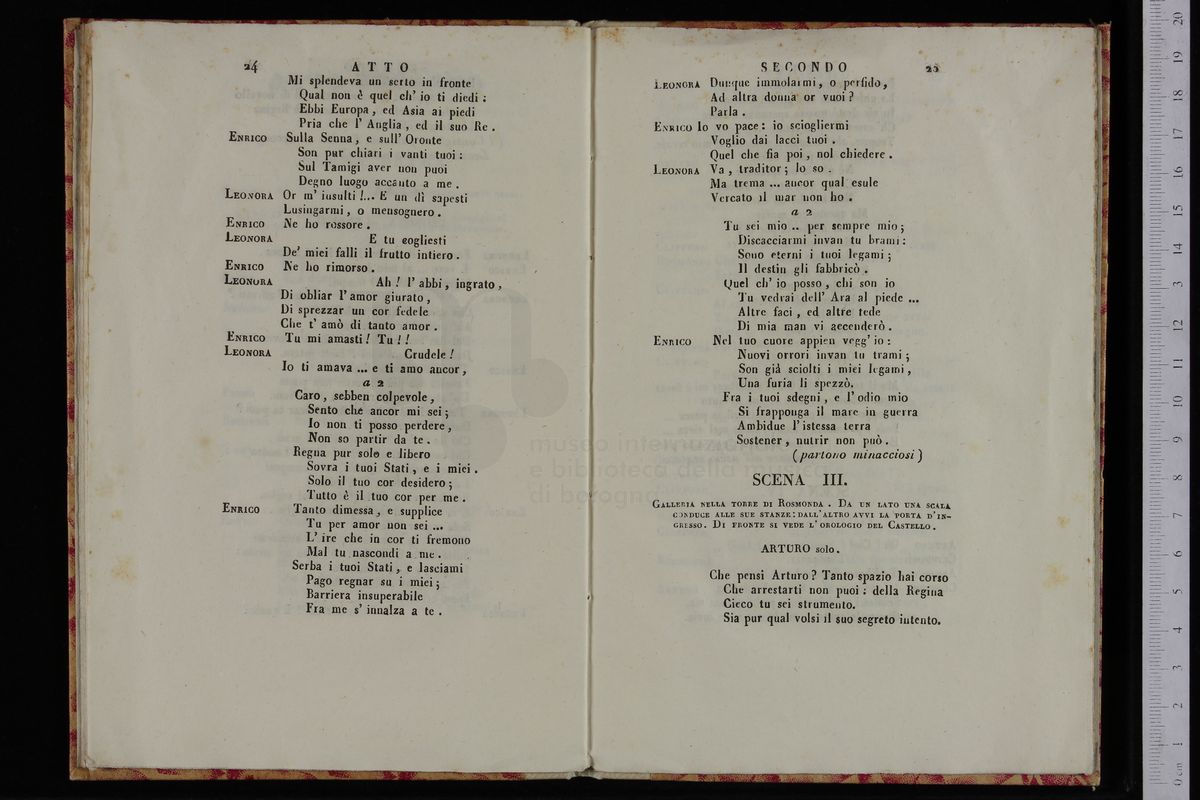 24 ATTO
Mi splendeva un serto in fronte
Qual non è quel ch' io ti diedi :
Ebbi Europa, ed Asia ai piedi
Pria che l' Anglia, ed il suo Re .
ENRICO Sulla Senna, e sull' Oronte
Son pur chiari i vanti tuoi :
Sul Tamigi aver non puoi
Degno luogo accanto a me .
LEONORA Or m' insulti !... E un dì sapesti
Lusingarmi, o mensognero .
ENRICO Ne ho rossore .
LEONORA E tu cogliesti
De' miei falli il frutto intiero .
ENRICO Ne ho rimorso .
LEONORA Ah ! l' abbi, ingrato,
Di obliar l' amor giurato,
Di sprezzar un cor fedele
Che t' amò di tanto amor .
ENRICO Tu mi amasti ! Tu ! !
LEONORA Crudele !
Io ti amava ... e ti amo ancor,
a 2
Caro, sebben colpevole,
Sento che ancor mi sei ;
Io non ti posso perdere,
Non so partir da te .
Regna pur solo e libero
Sovra i tuoi Stati, e i miei .
Solo il tuo cor desidero ;
Tutto è il tuo cor per me .
ENRICO Tanto dimessa, e supplice
Tu per amor non sei ...
L' ire che in cor ti fremono
Mal tu nascondi a me .
Serba i tuoi Stati, e lasciami
Pago regnar su i miei ;
Barriera insuperabile
Fra me s' innalza a te .
SECONDO 25
LEONORA Dunque immolarmi, o perfido,
Ad altra donna or vuoi ?
Parla .
ENRICO Io vo pace : io sciogliermi
Voglio dai lacci tuoi .
Quel che fia poi, nol chiedere .
LEONORA Va, traditor ; lo so .
Ma trema ... ancor qual esule
Vercato il mar non ho .
a 2
Tu sei mio .. per sempre mio ;
Discacciarmi invan tu brami :
Sono eterni i tuoi legami ;
Il destin gli fabbricò .
Quel ch' io posso, chi son io
Tu vedrai dell' Ara al piede ...
Altre faci, ed altre tede
Di mia man vi accenderò .
ENRICO Nel tuo cuore appien vegg' io :
Nuovi orrori invan tu trami ;
Son già sciolti i miei legami,
Una furia li spezzò.
Fra i tuoi sdegni, e l' odio mio
Si frapponga il mare in guerra
Ambidue l' istessa terra
Sostener, nutrir non può .
(partono minacciosi)
SCENA III.
GALLERIA NELLA TORRE DI ROSMONDA . DA UN LATO UNA SCALA
CONDUCE ALLE SUE STANZE: DALL' ALTRO AVVI LA PORTA D' IN-
GRESSO . DI FRONTE SI VEDE L' OROLOGIO DEL CASTELLO .
ARTURO solo.
Che pensi Arturo ? Tanto spazio hai corso
Che arrestarti non puoi : della Regina
Cieco tu sei strumento.
Sia pur qual volsi il suo segreto intento.
museo internazionale
e biblioteca della musica
di bologna
0 cm 1 2 3 4 5 6 7 8 9 10 11 12 13 14 15 16 17 18 19 20